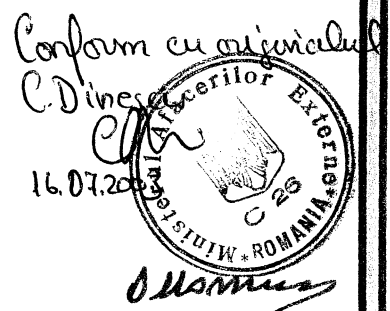 Conform cu originalul
C. Dinescu
16.07.200
Ministerul Afacerilor Externe
* ROMANIA *
C 26